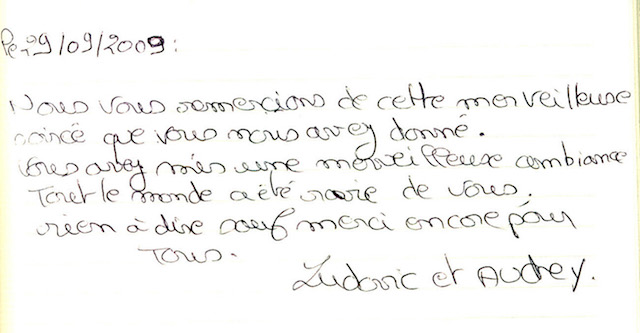 Le 29/09/2009 :
Nous vous remercions de cette merveilleuse
soirée que vous nous avez donné.
Vous avez mis une merveilleuse ambiance
Tout le monde a été de vous.
rien à dire sauf merci encore pour
Tous.
Ludovic et Audrey.